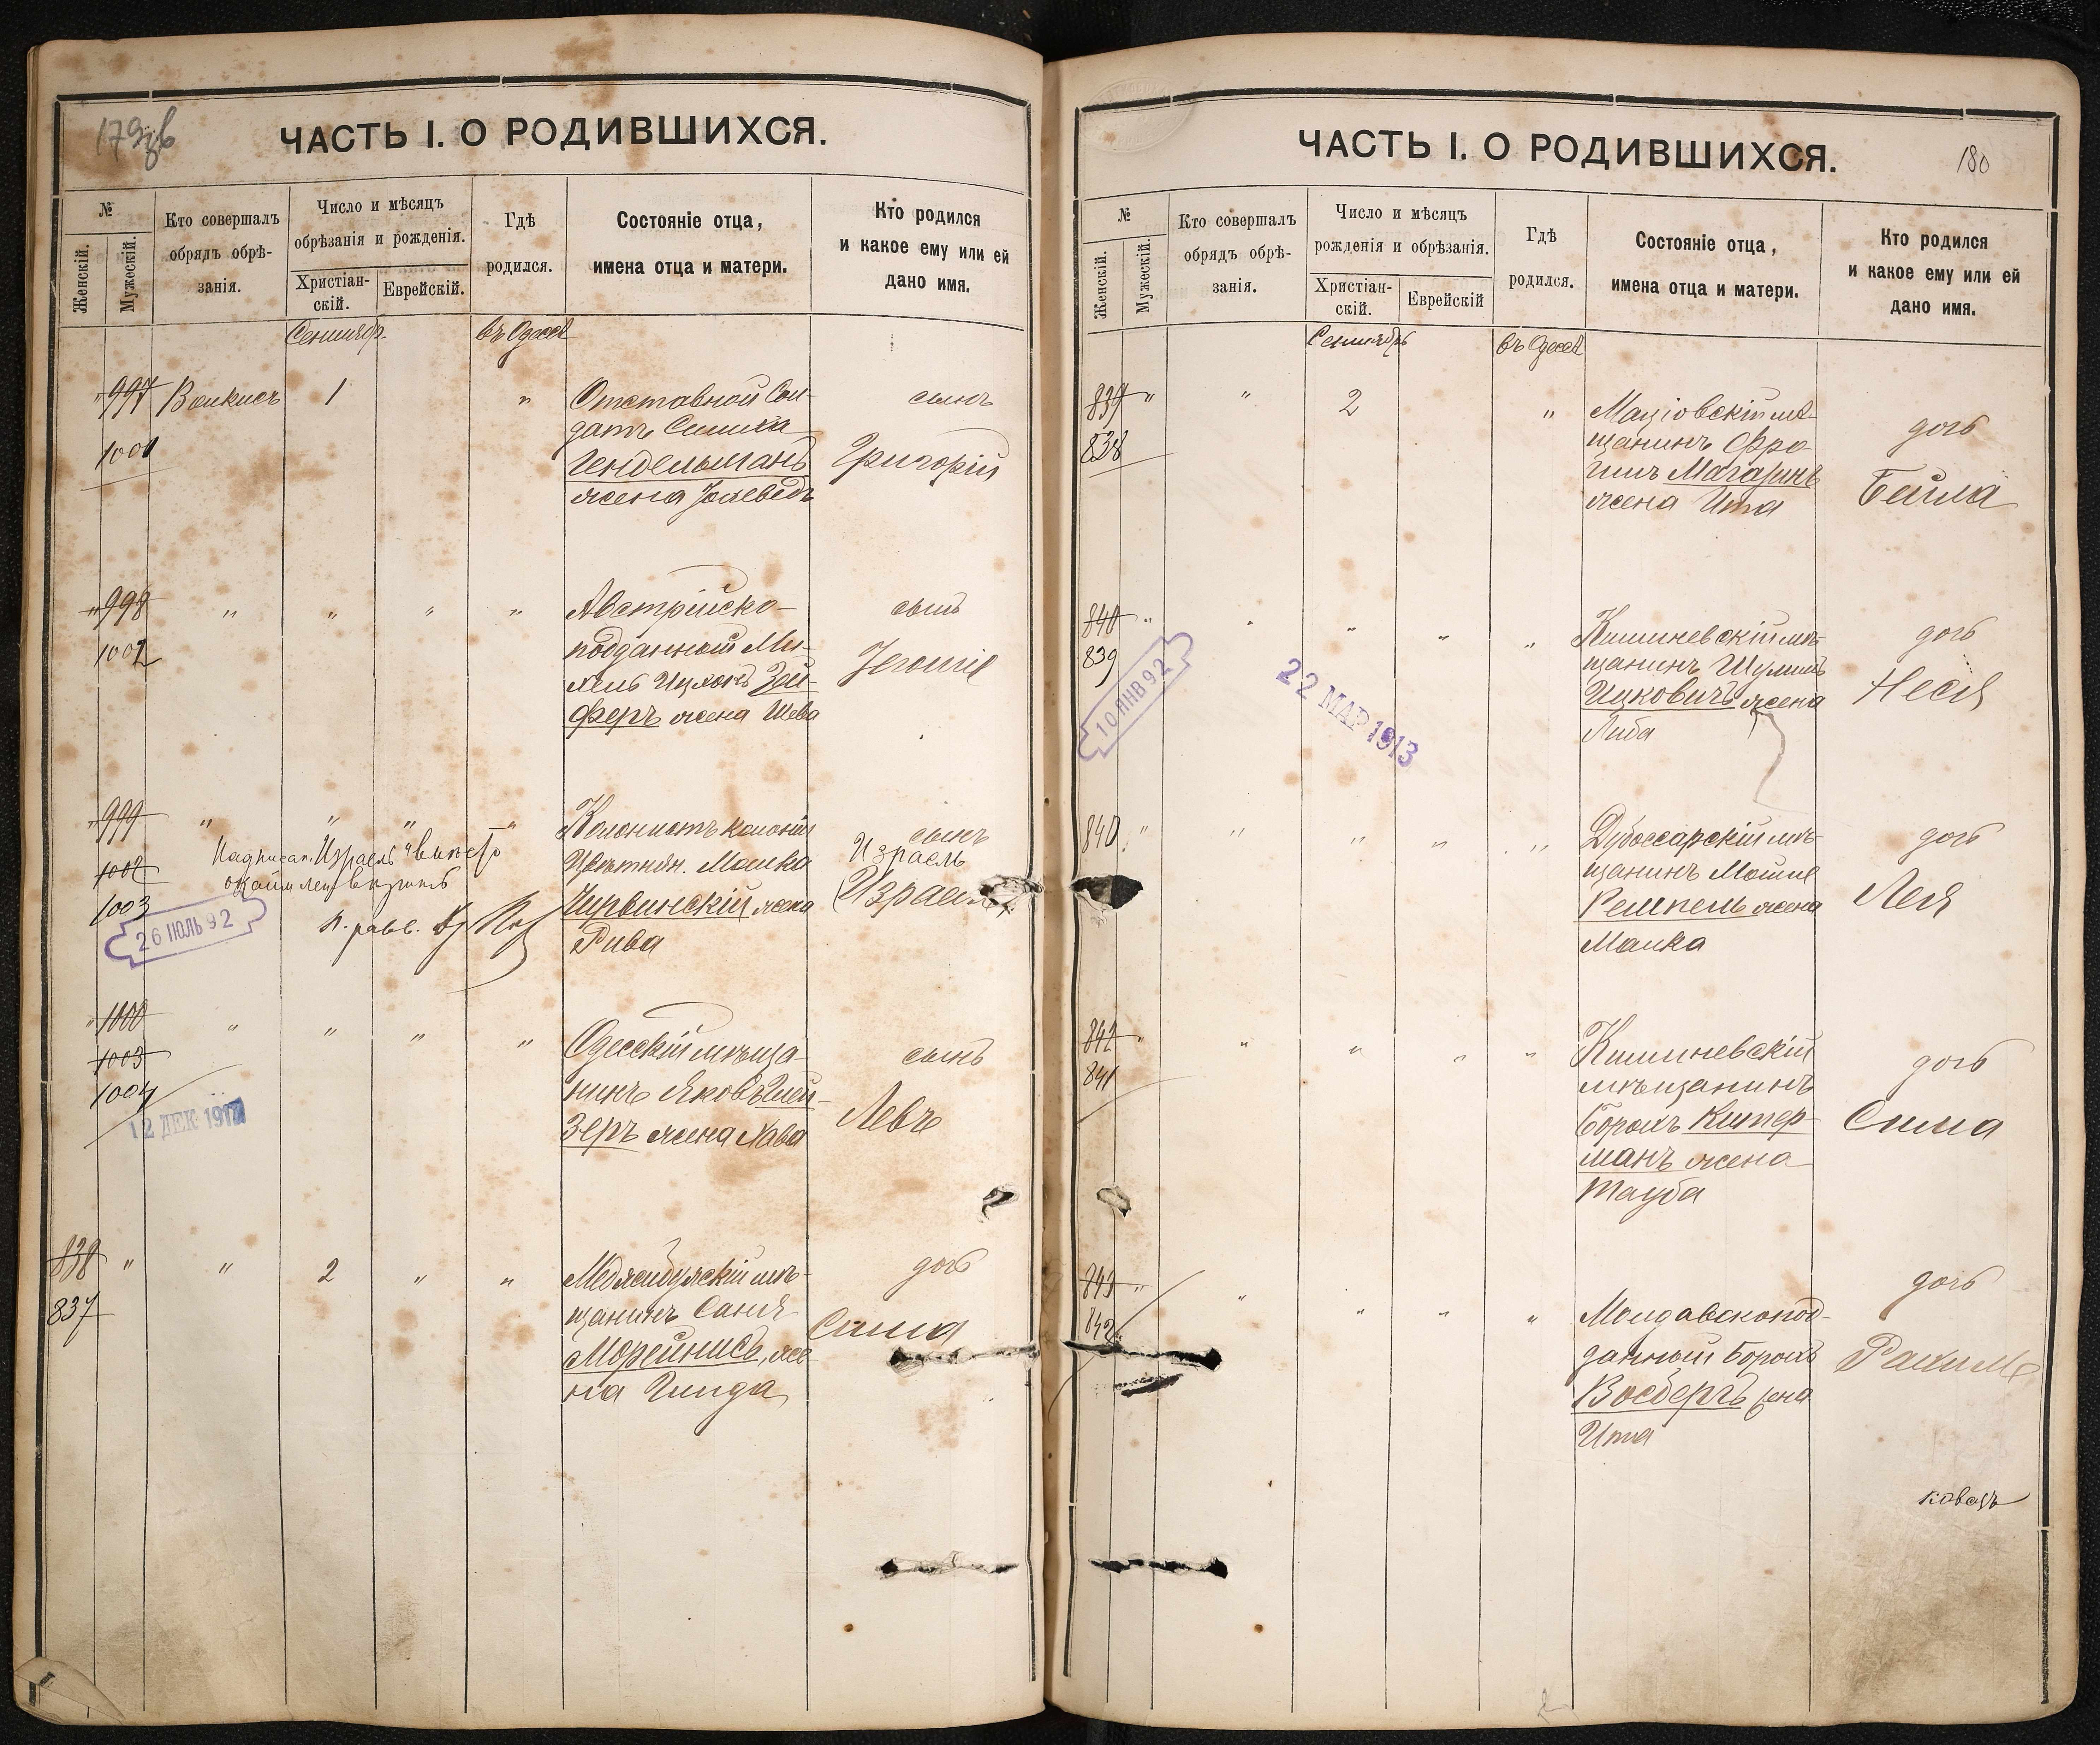 179об
ЧАСТЬ I. О РОДИВШИХСЯ.
№
Женскій.
Мужескій.
Кто совершалъ
обрядъ обрѣ-
занія.
Число и мѣсяцъ
обрѣзанія и рожденія.
Христіан-
скій.
Еврейскій.
Гдѣ
родился.
Состояніе отца,
имена отца и матери.
Кто родился
и какое ему или ей
дано имя.
Сентябр.
въ Одессѣ
" 997
1001
1
"
Отставной Сол-
датъ
Гендельманъ
жена Иохеведъ
сынъ
Григорій
" 998
1002
" " " "
Австрійско-
подданный Ми-
хель Ицхокъ Зей-
феръ жена Шева
сынъ
" 999
1002
1003
" " " "
Надписан. Израель вмѣсто
26 ІЮЛЬ 92
Колонистъ колоніи
Рива
сынъ
Израель
(Израиль)
" 1000
1003
1004
" " " "
12 ДЕК 1917
Одесскій мѣща-
нинъ Яковъ Глей-
зеръ жена Хава
сынъ
Левъ
838 "
837
" 2 " "
мѣ-
щанинъ Саня
Морейнисъ, же-
на Гинда
дочь
Сима
ЧАСТЬ I. О РОДИВШИХСЯ.
180
№
Женскій.
Мужескій.
Кто совершалъ
обрядъ обрѣ-
занія.
Число и мѣсяцъ
рожденія и обрѣзанія.
Христіан-
скій.
Еврейскій
Гдѣ
родился.
Состояніе отца,
имена отца и матери.
Кто родился
и какое ему или ей
дано имя.
Сентябрь
въ Одессѣ
839 "
838
" 2 "
мѣ-
щанинъ Фро-
имъ Магаринъ
жена Ита
дочь
Бейла
840 "
839
" " " "
10 ЯНВ 92
22 МАР 1913
Кишиневскій мѣ-
щанинъ Шулимъ
Ицковичъ жена
Либа
дочь
Неся
840 "
" " " "
Дубоссарскій мѣ-
щанинъ Мошко
жена
Малка
дочь
Лея
842 "
841
" " " "
Кишиневскій
мѣщанинъ
Борохъ Китер-
манъ жена
Тауба
дочь
Сима
843 "
842
" " " "
Молдавскопод-
данный Борохъ
Восбергъ жена
Ита
дочь